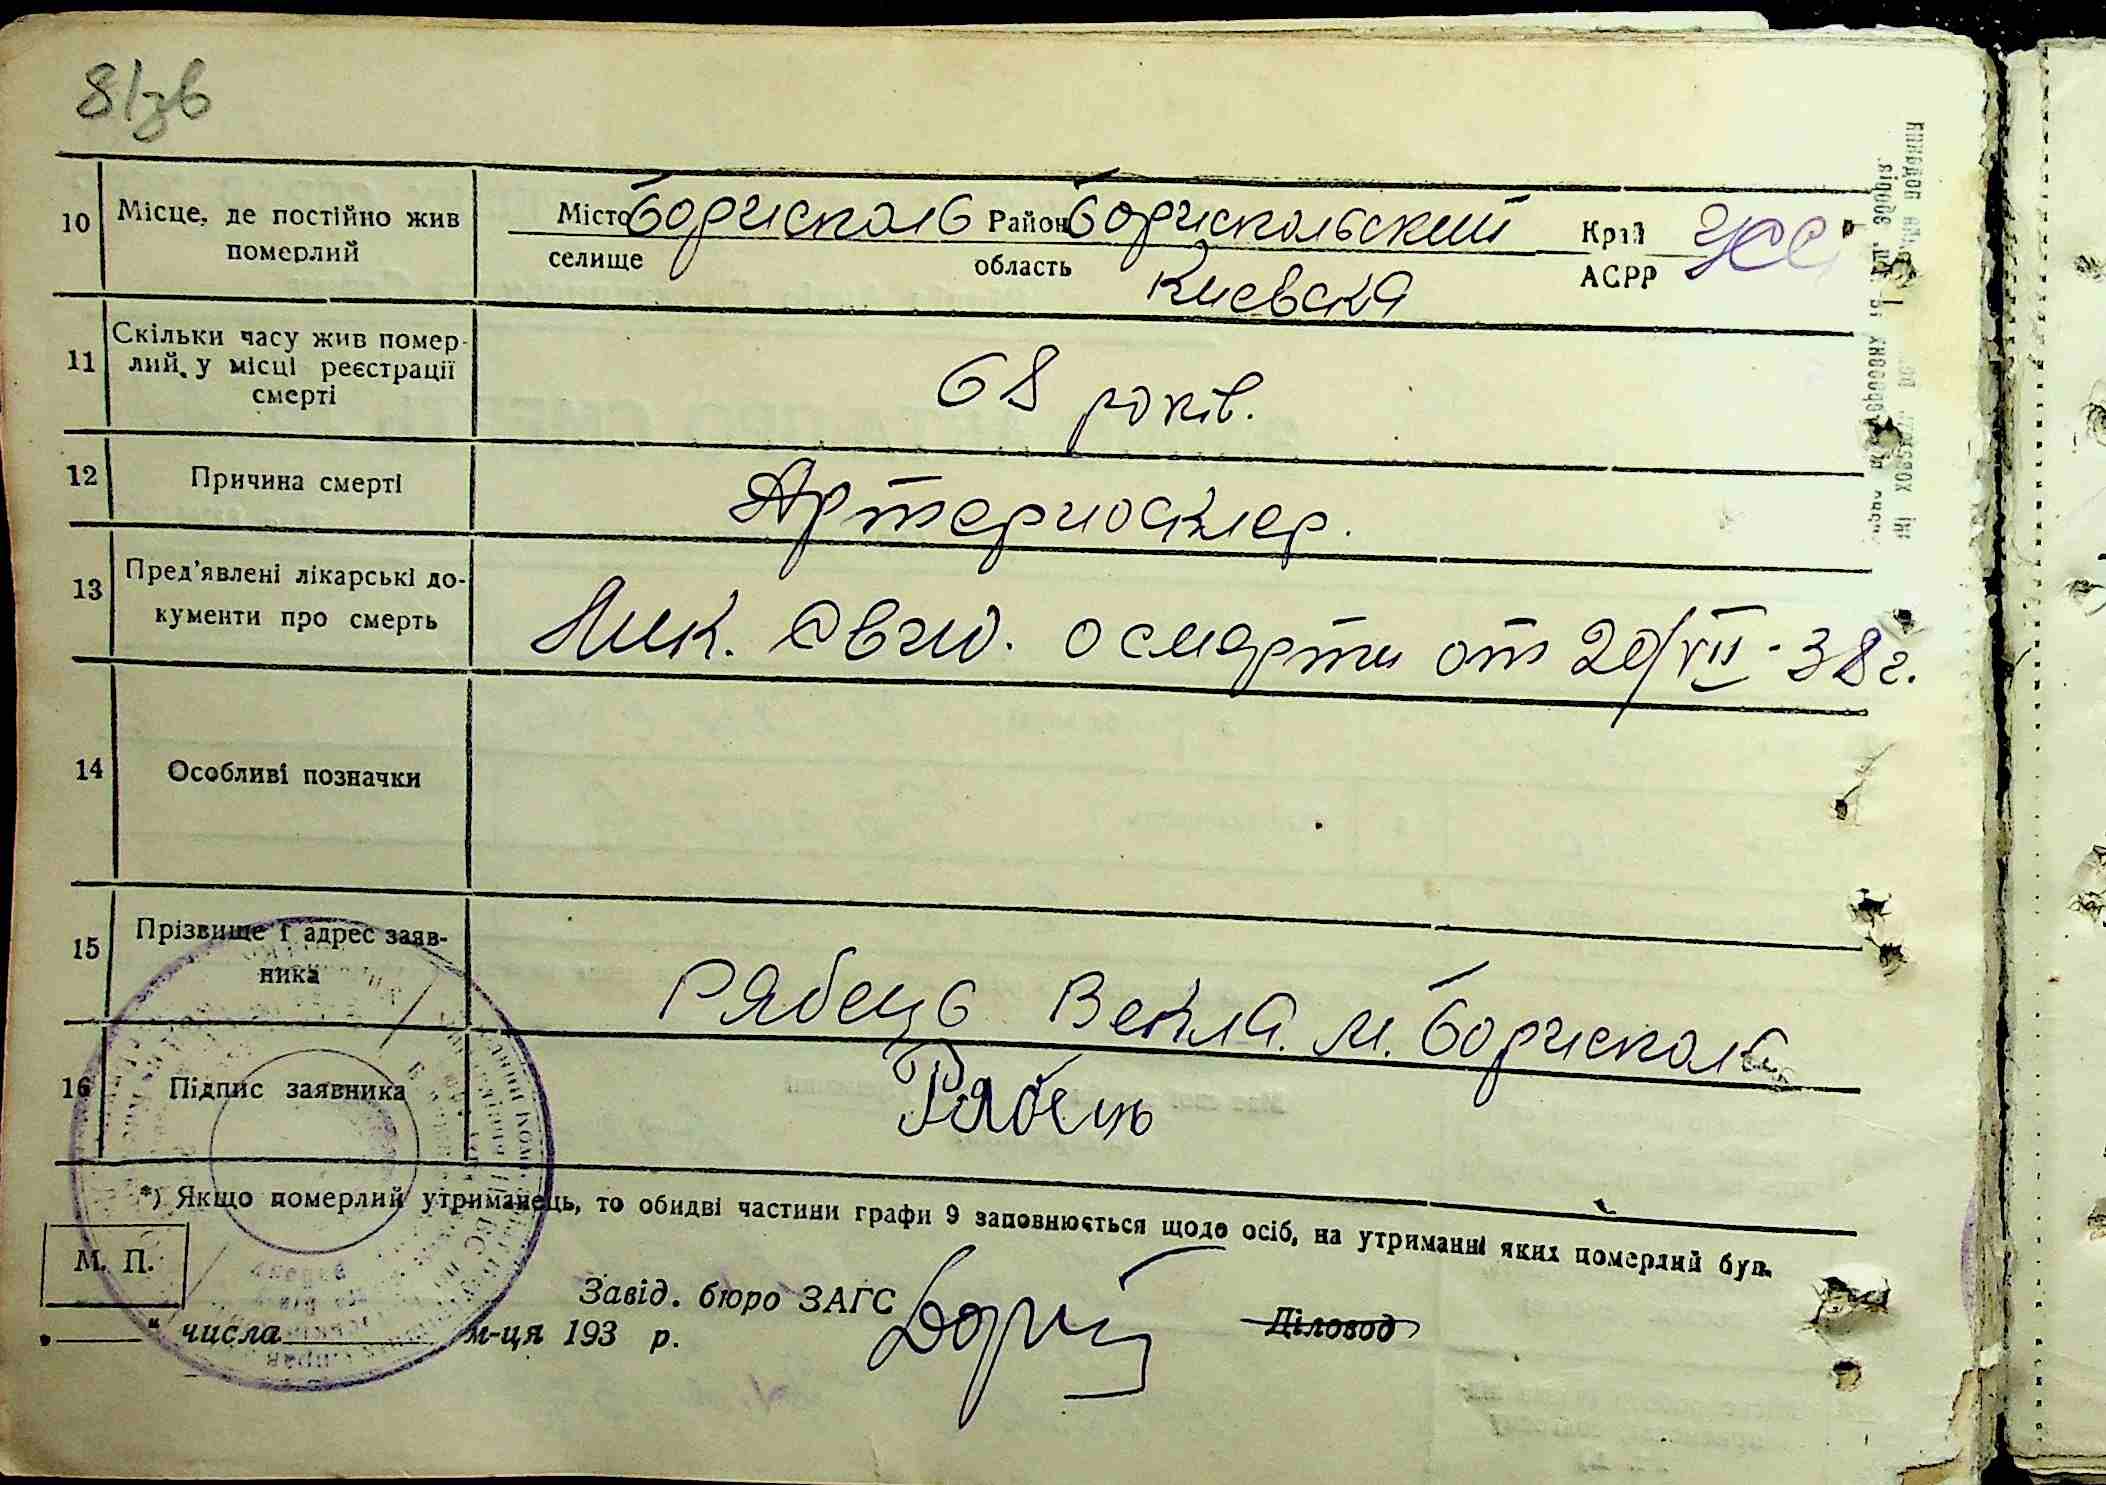 8/зв
10 Місце, де постійно жив померлий Місто Борисполь Район Бориспольский Край УССР
селище область Киевска АСРР
11 Скільки часу жив помер-
лий у місці реєстрації
смерті
68 років.
12 Причина смерті Артериосклер.
13 Пред'явлені лікарські до-
кументи про смерть
Лик. Свид. о смерти от 20/VII-38 г.
14 Особливі позначки
15 Прізвище і адрес заяв-
ника
Рябець Векла. м. Борисполь
16 Підпис заявника Рябець
*) Якщо померлий утриманець, то обидві частини графи 9 заповнюється щодо осіб, на утриманні яких померлий був.
М. П.
Завід. бюро ЗАГС Діловод
„ “ числа м-ця 193 р.